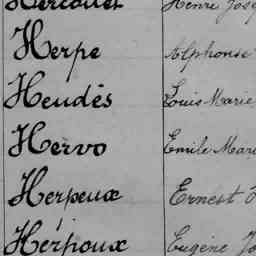 Hercouet Henri Jos
Herpe Alphonse
Heudès Louis Marie
Hervo Emile Mari
Herpeux Ernest
Hérpoux Eugène Jo